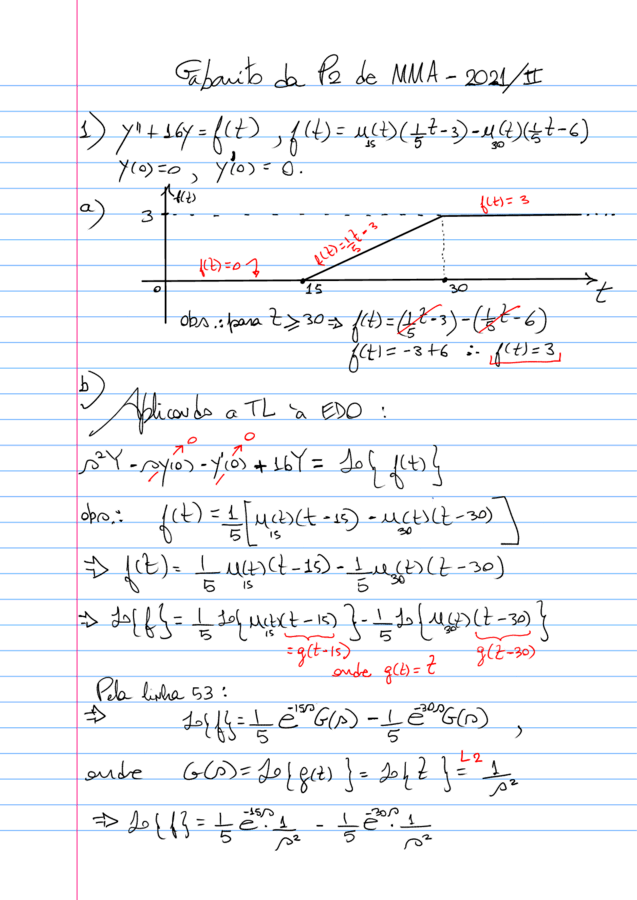 Gabarito da P2 de MMA - 2021/II
1) y'' + 16y = f(t) , f(t) = u₁₅(t)(1/5 t - 3) - u₃₀(t)(1/5 t - 6)
y(0) = 0 , y'(0) = 0.
a)
f(t)
3
f(t) = 3
f(t) = 1/5 t - 3
f(t) = 0
0 15 30 t
obs.: para t ≥ 30 ⇒ f(t) = (1/5 t - 3) - (1/5 t - 6)
f(t) = -3 + 6 ∴ f(t) = 3
b) Aplicando a TL à EDO :
0 0
s²Y - sy(0) - y'(0) + 16Y = ℒ{f(t)}
obs.: f(t) = 1/5 [u₁₅(t)(t - 15) - u₃₀(t)(t - 30)]
⇒ f(t) = 1/5 u₁₅(t)(t - 15) - 1/5 u₃₀(t)(t - 30)
⇒ ℒ{f} = 1/5 ℒ{u₁₅(t)(t - 15)} - 1/5 ℒ{u₃₀(t)(t - 30)}
= g(t-15) g(t-30)
onde g(t) = t
Pela linha 53 :
⇒ ℒ{f} = 1/5 e^{-15s} G(s) - 1/5 e^{-30s} G(s) ,
onde G(s) = ℒ{g(t)} = ℒ{t} =^{L2} 1/s²
⇒ ℒ{f} = 1/5 e^{-15s} · 1/s² - 1/5 e^{-30s} · 1/s²